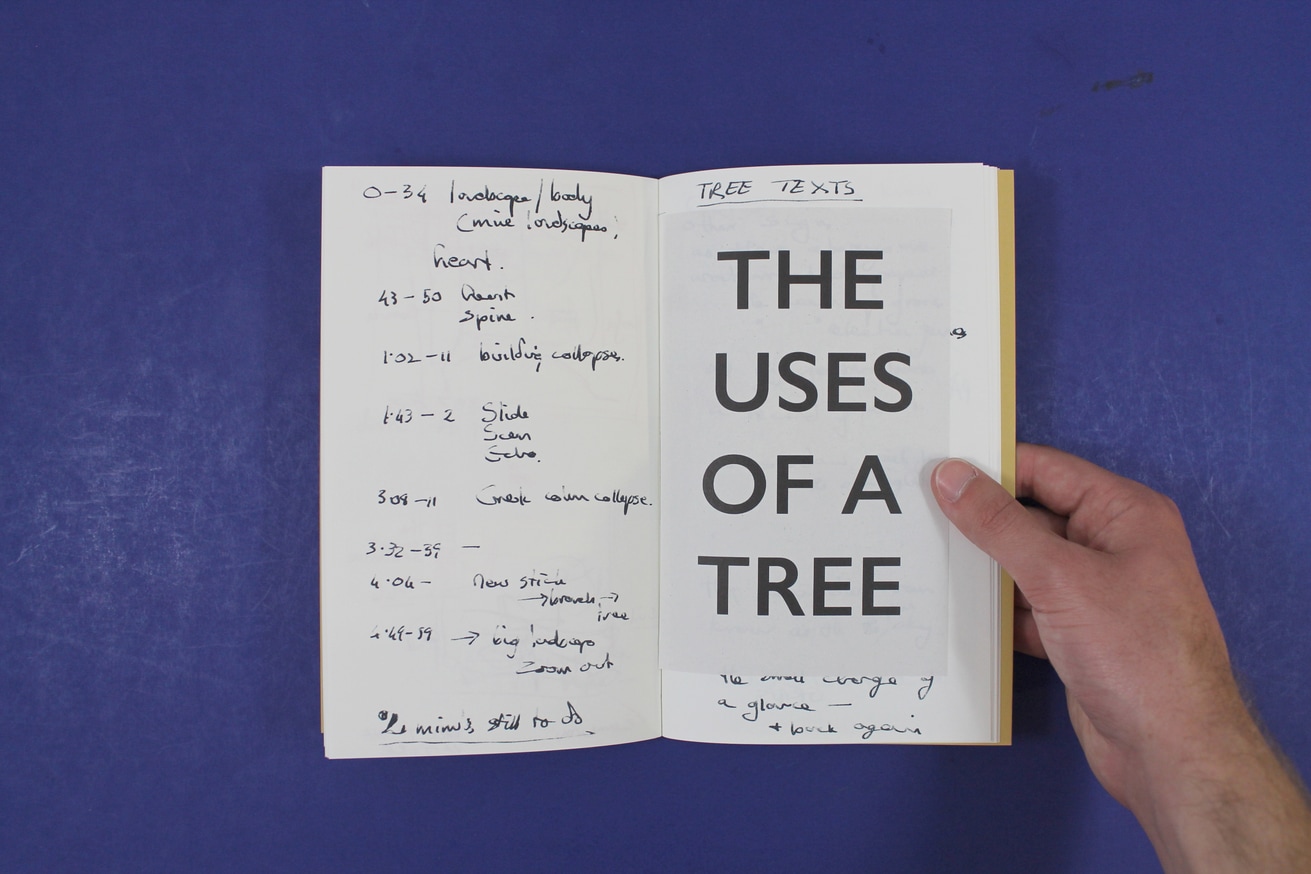 0-34 landscape/body
(mine landscapes)
heart.
43-50 Heart
Spine.
1.02-11 building collapses.
1.43-2 Slide
Scan
Echo.
3 08-11 Greek column collapse.
3.32-39 —
4.04- New stick
→ branch →
tree
4.49-59 → big landscape
Zoom out
mins still to do
TREE TEXTS
THE
USES
OF A
TREE
the small change of
a glance —
+ back again